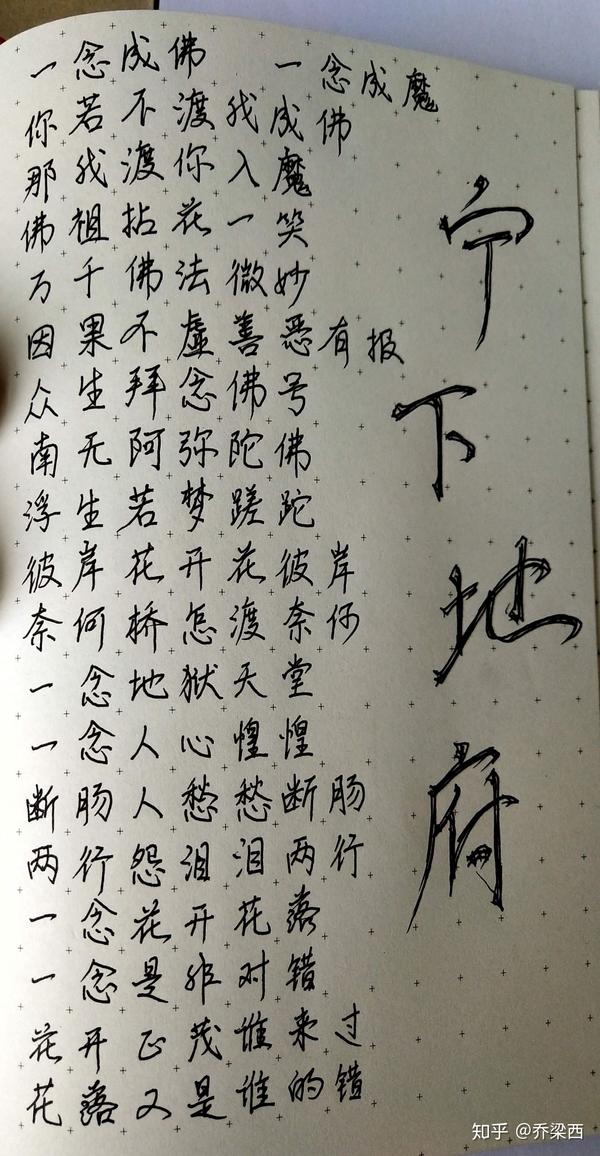 一念成佛 一念成魔
你若不渡我成佛
那我渡你入魔
佛祖拈花一笑
万千佛法微妙
因果不虚善恶有报
众生拜念佛号
南无阿弥陀佛
浮生若梦蹉跎
彼岸花开花彼岸
奈何桥怎渡奈何
一念地狱天堂
一念人心惶惶
断肠人愁愁断肠
两行怨泪泪两行
一念花开花落
一念是非对错
花开正茂谁来过
花落又是谁的错
宁下地府
知乎 @乔梁西